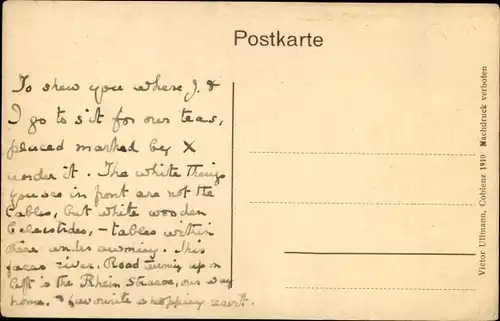 Postkarte
To shew you where J. &
I go to sit for our teas,
placed marked by X
under it. The white things
you see in front are not the
tables, but white wooden
- tables within
are under awning. This
faces river. Road running up on
left is the Rhein Strasse, our way
home. & favourite shopping resort.
Victor Ullmann, Coblenz 1910 Nachdruck verboten